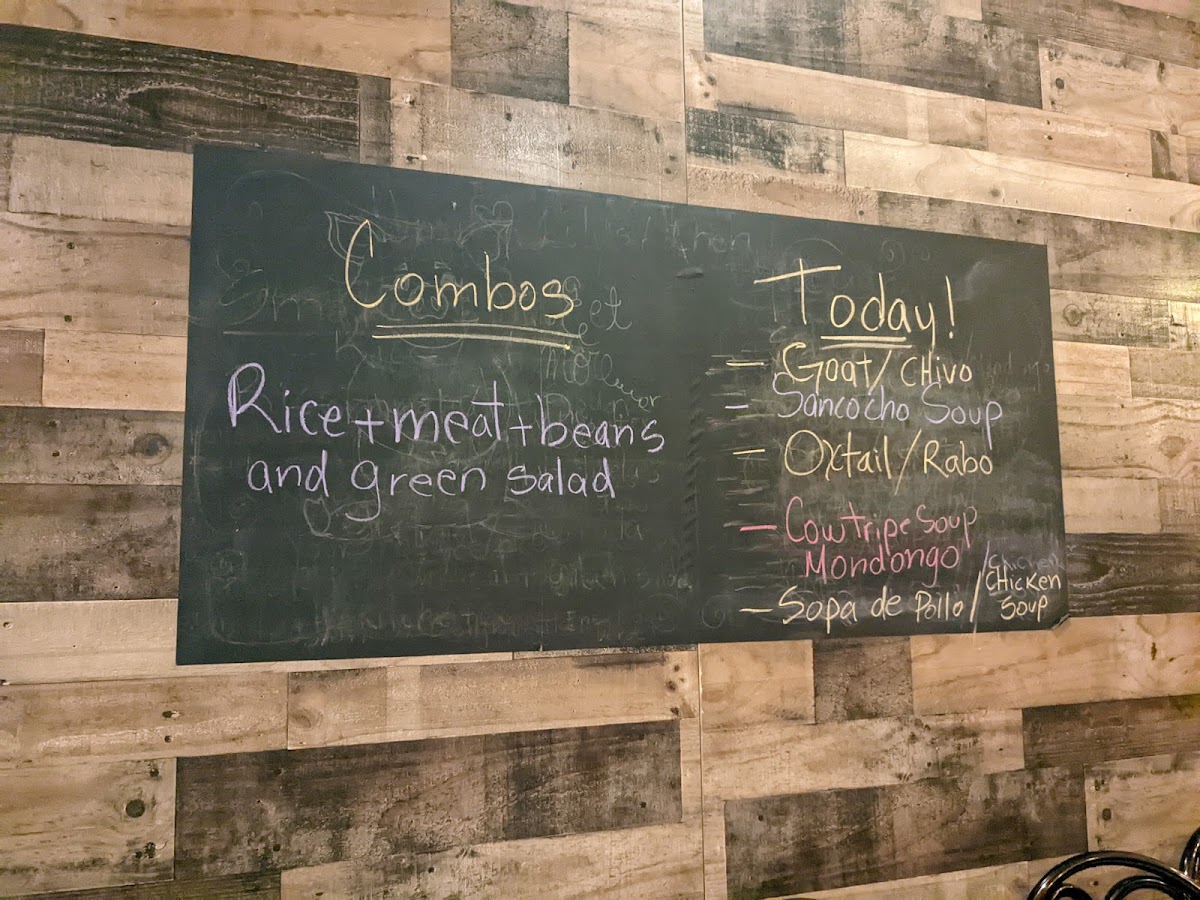 Combos
Rice+meat+beans
and green salad
Today!
- Goat/CHivo
- Sancocho Soup
- Oxtail/Rabo
- Cowtripe Soup
Mondongo
- Sopa de Pollo/CHicken
Soup